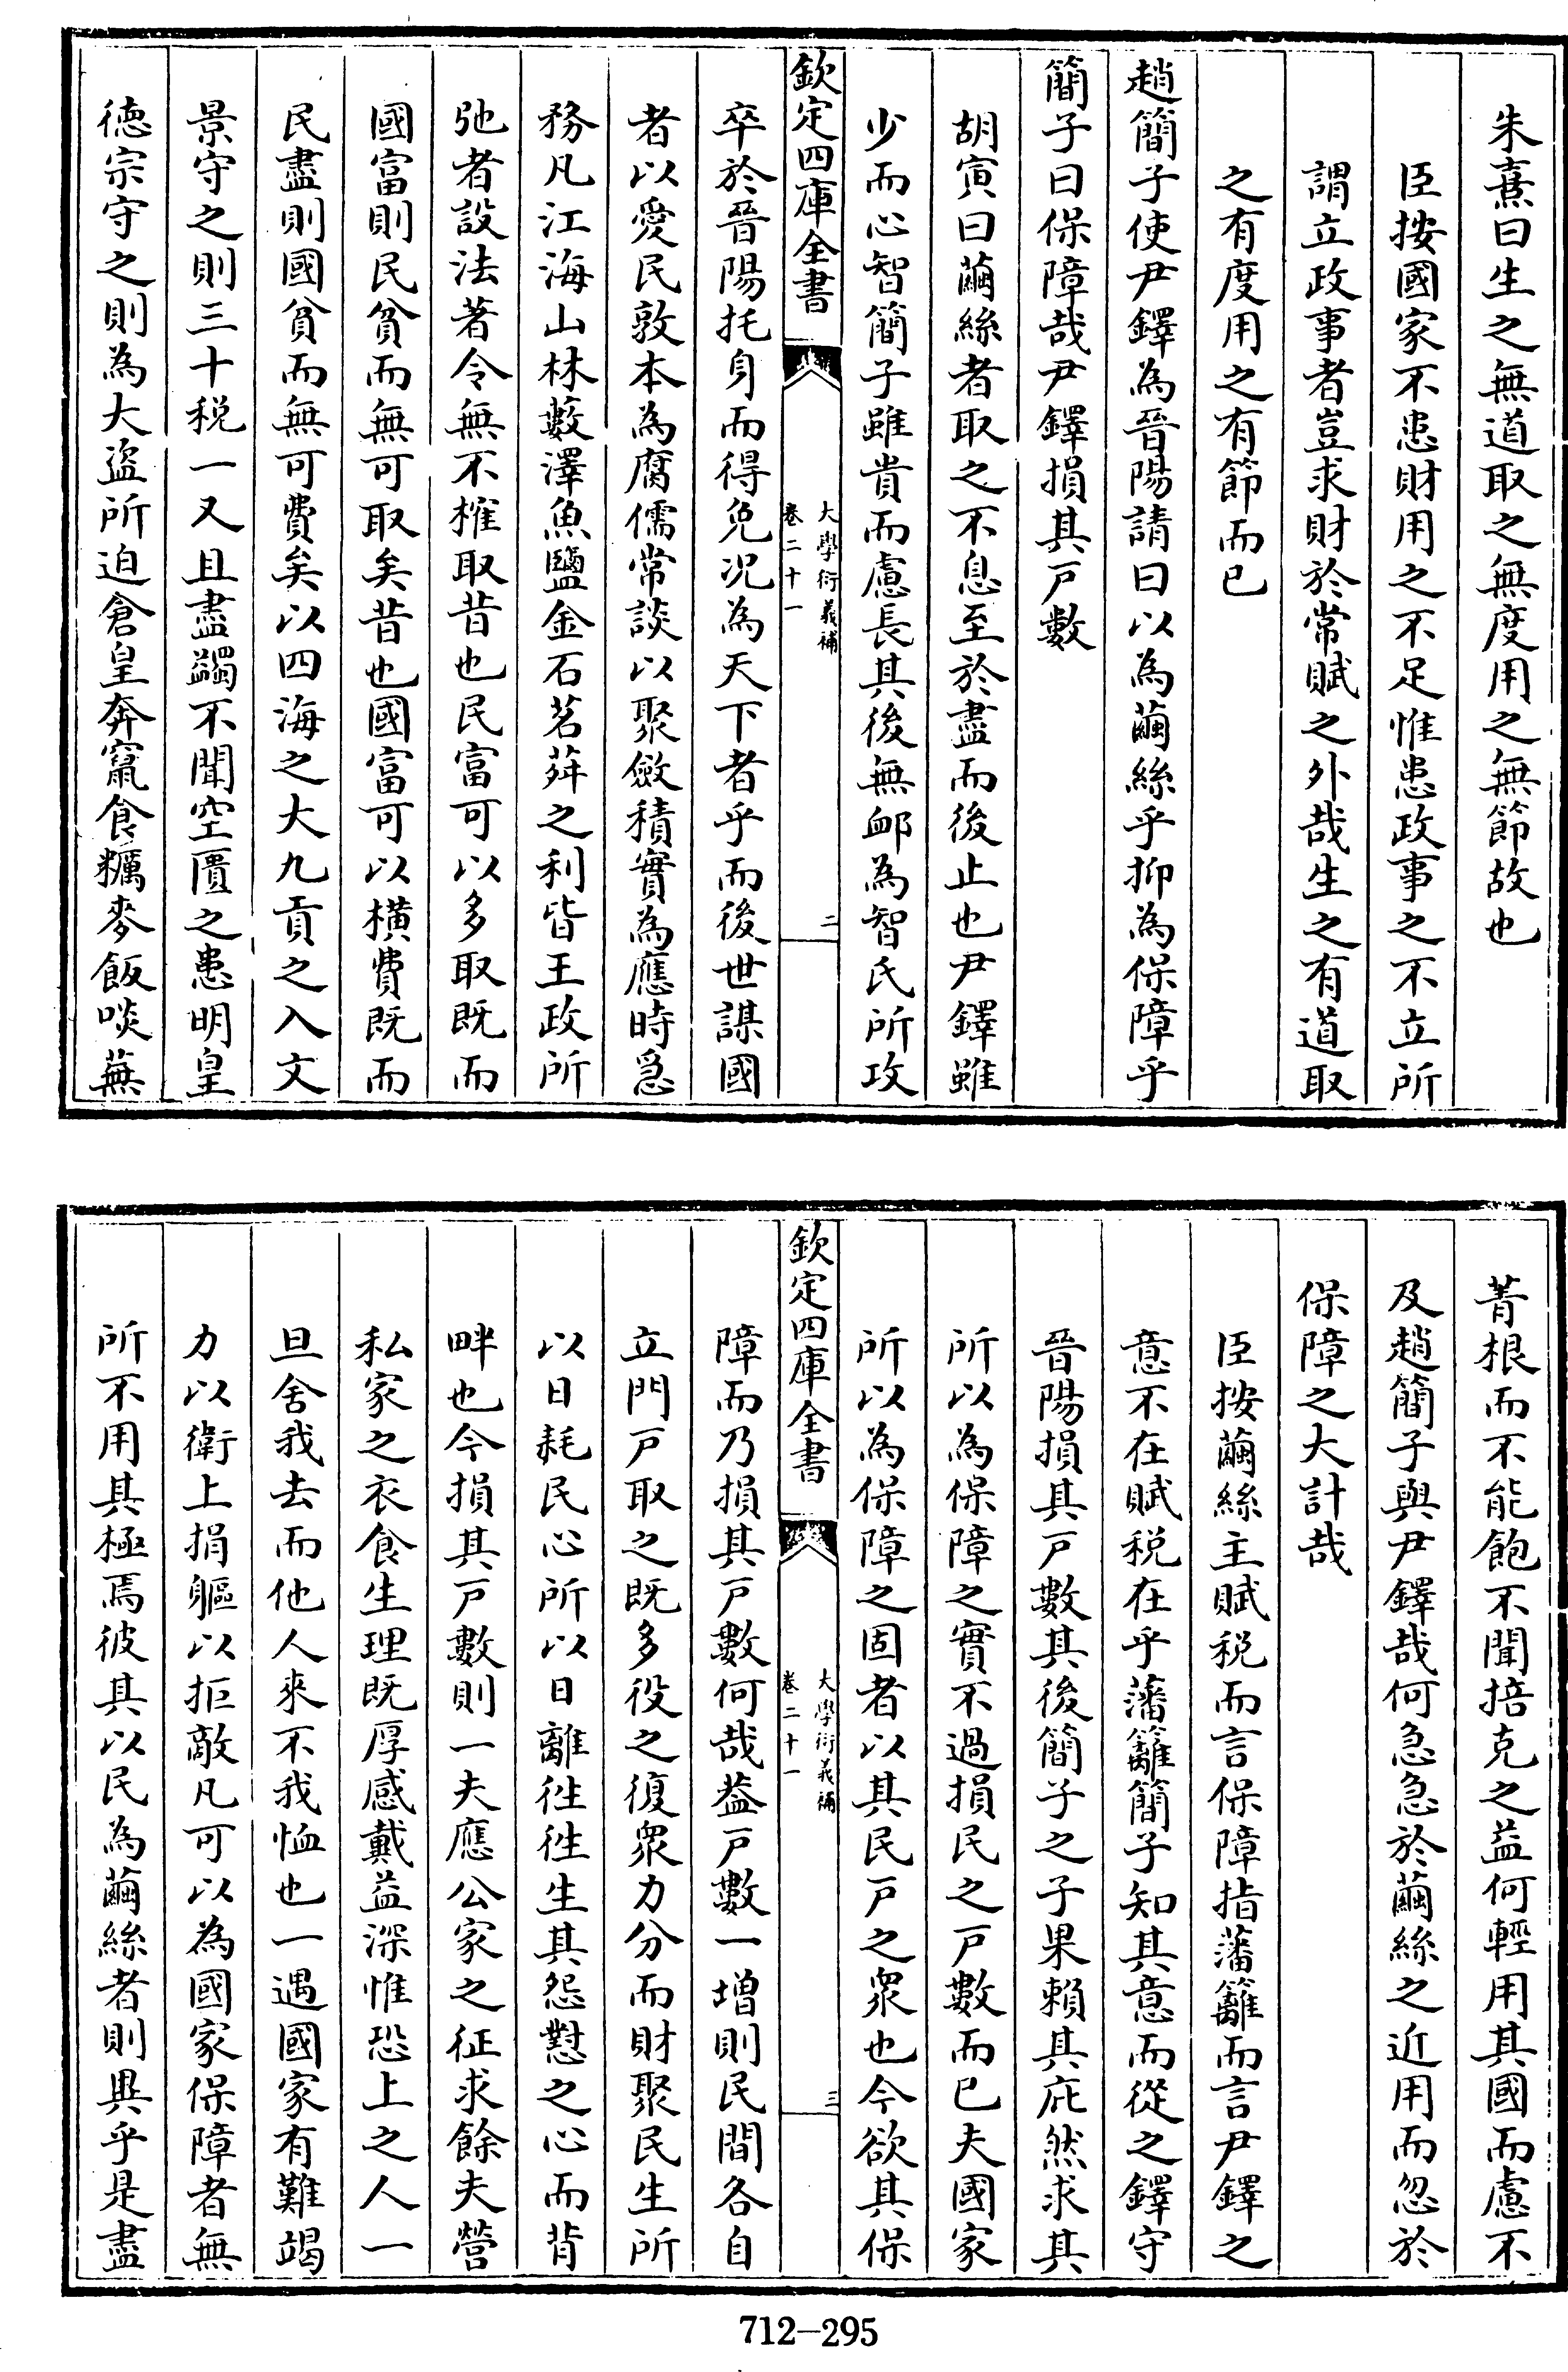 朱熹曰生之無道取之無度用之無節故也
臣按國家不患財用之不足惟患政事之不立所
謂立政事者豈求財於常賦之外哉生之有道取
之有度用之有節而已
趙簡子使尹鐸為晉陽請曰以為繭絲乎抑為保障乎
簡子曰保障哉尹鐸損其戸數
胡寅曰繭絲者取之不息至於盡而後止也尹鐸雖
少而心智簡子雖貴而慮長其後無䘏為智氏所攻
欽定四庫全書
大學衍義補
卷二十一
二
卒於晉陽托身而得免况為天下者乎而後世謀國
者以愛民敦本為腐儒常談以聚斂積實為應時急
務凡江海山林藪澤魚鹽金石茗荈之利皆王政所
弛者設法著令無不榷取昔也民富可以多取既而
國富則民貧而無可取矣昔也國富可以橫費既而
民盡則國貧而無可費矣以四海之大九貢之入文
景守之則三十税一又且盡蠲不聞空匱之患明皇
徳宗守之則為大盜所迫倉皇奔竄食糲麥飯啖蕪
菁根而不能飽不聞掊克之益何輕用其國而慮不
及趙簡子與尹鐸哉何急急於繭絲之近用而忽於
保障之大計哉
臣按繭絲主賦税而言保障指藩籬而言尹鐸之
意不在賦税在乎藩籬簡子知其意而從之鐸守
晉陽損其戸數其後簡子之子果賴其庇然求其
所以為保障之實不過損民之戸數而已夫國家
所以為保障之固者以其民戸之衆也今欲其保
欽定四庫全書
大學衍義補
卷二十一
三
障而乃損其戸數何哉葢戸數一增則民間各自
立門戸取之既多役之復衆力分而財聚民生所
以日耗民心所以日離徃徃生其怨懟之心而背
畔也今損其戸數則一夫應公家之征求餘夫營
私家之衣食生理既厚感戴益深惟恐上之人一
旦舍我去而他人來不我恤也一遇國家有難竭
力以衛上捐軀以拒敵凡可以為國家保障者無
所不用其極焉彼其以民為繭絲者則異乎是盡
712-295